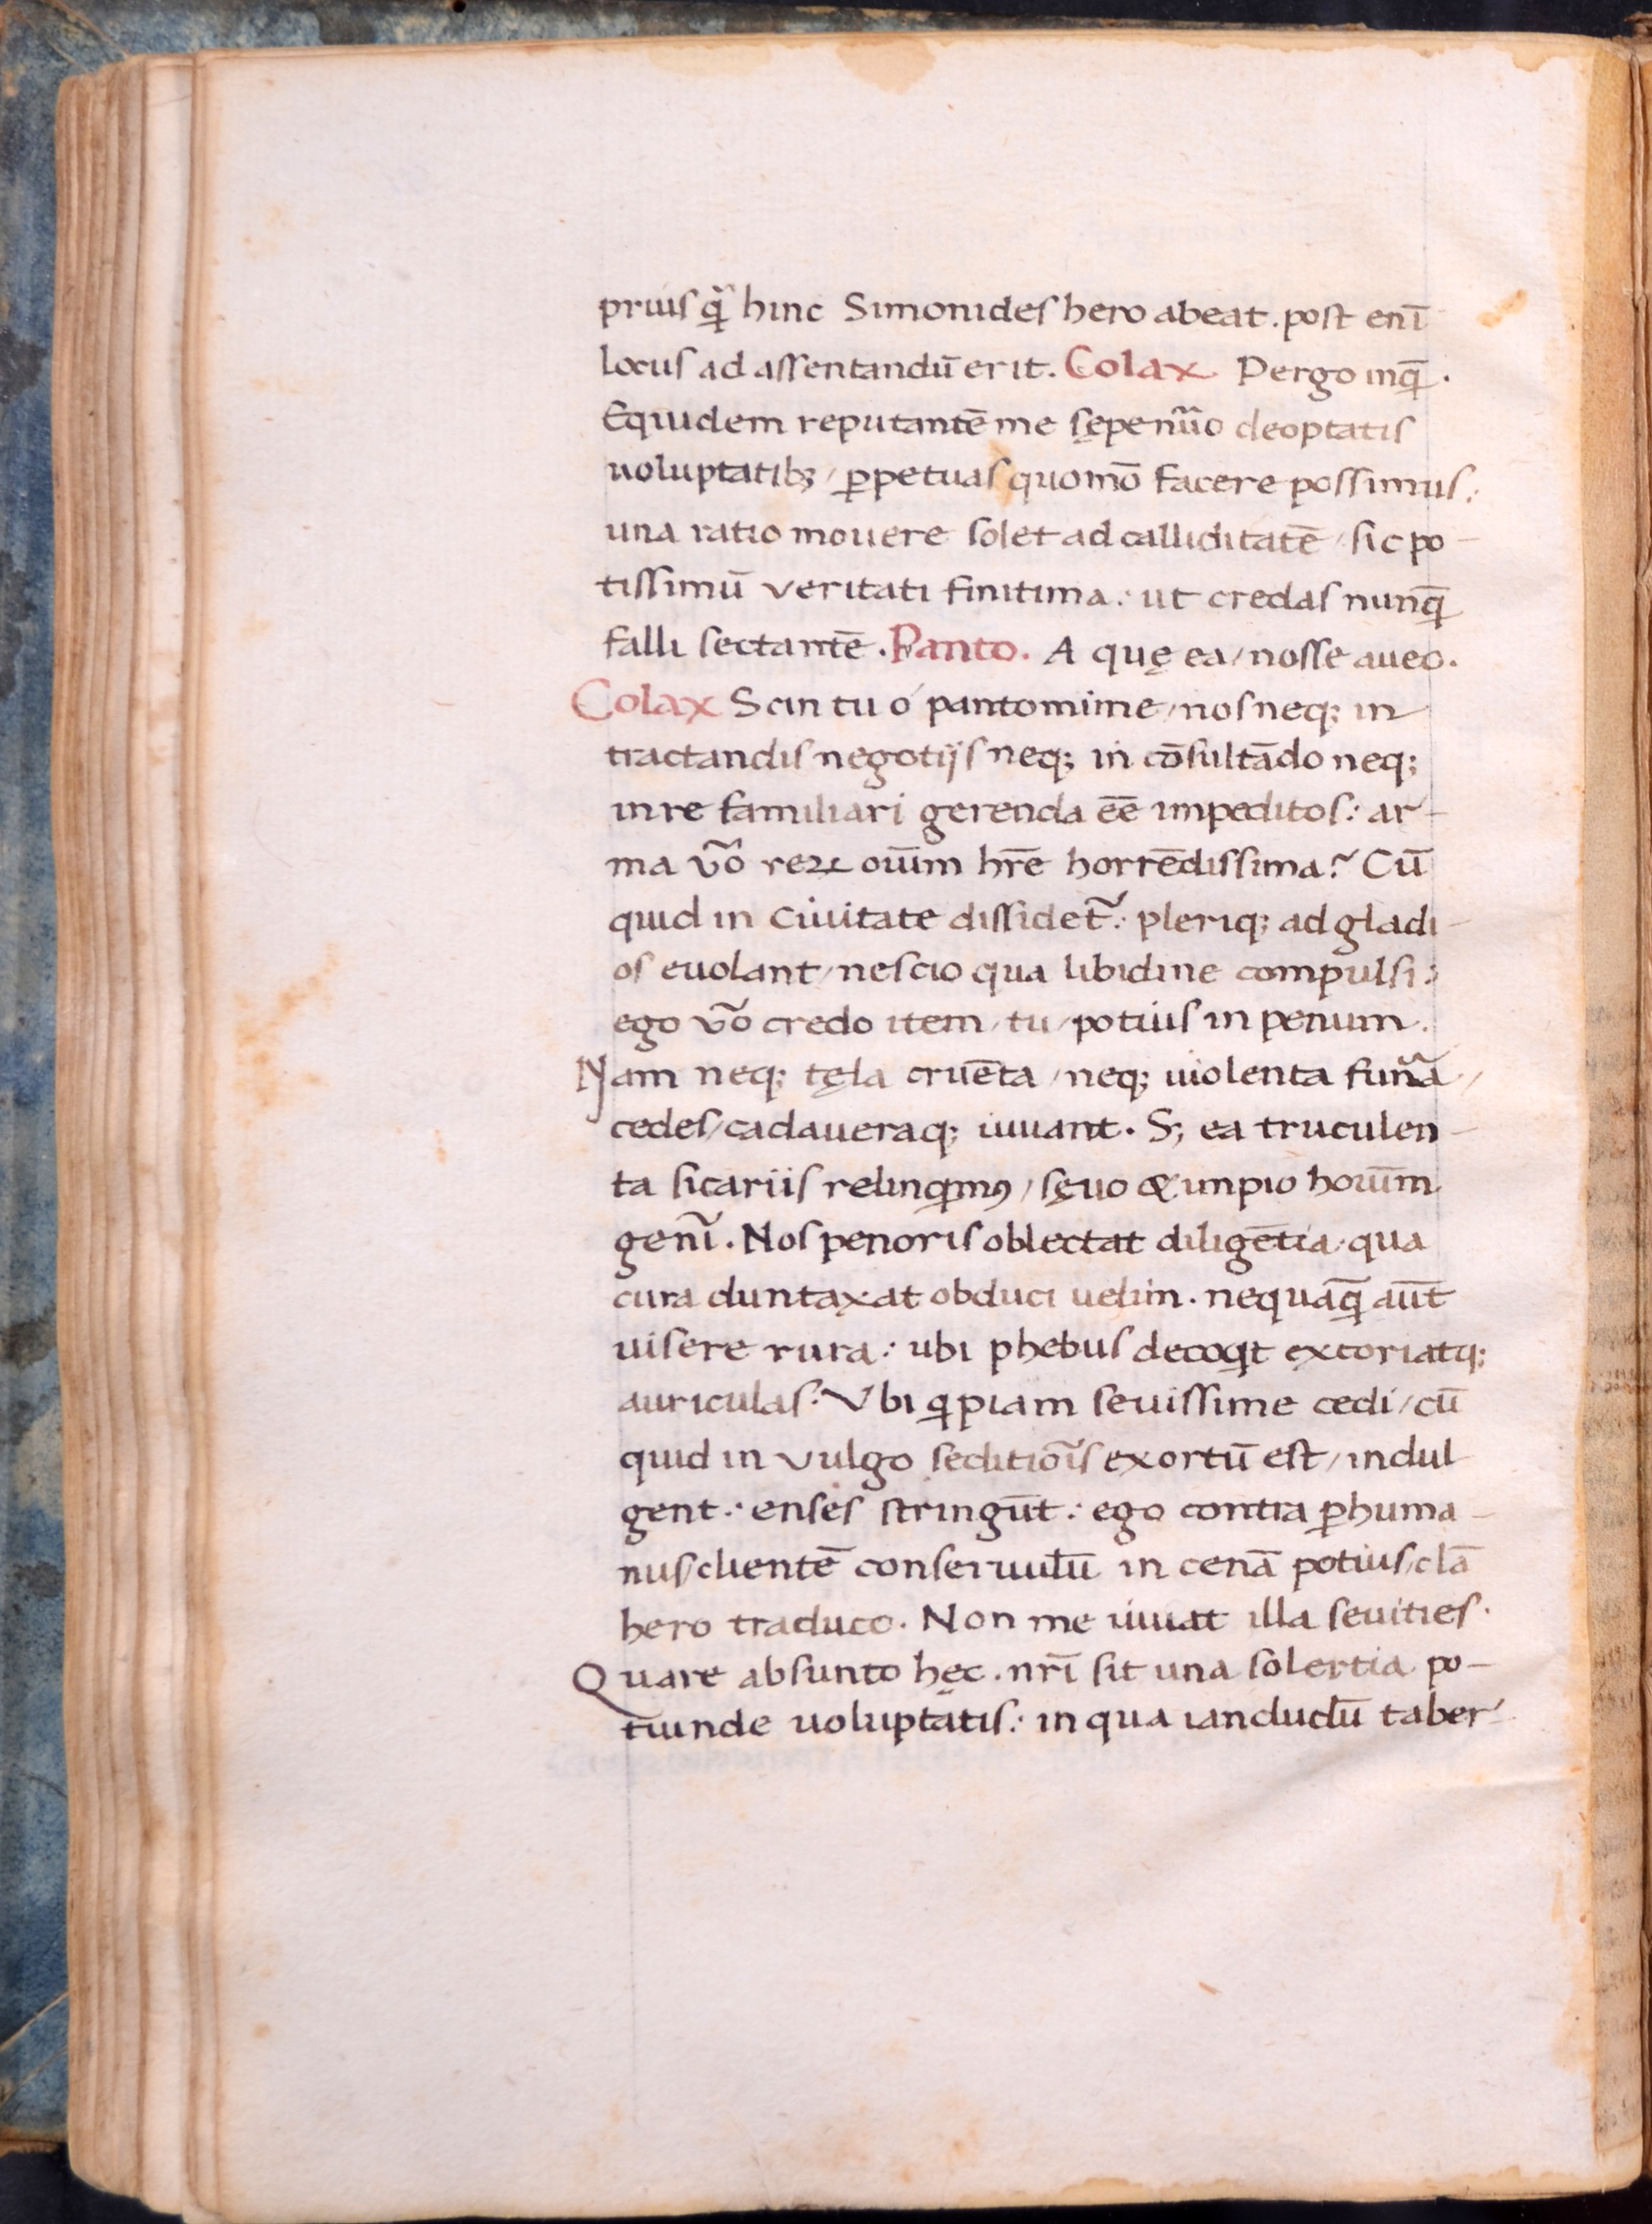 prius q̃ hinc Simonides hero abeat. post enī
locus ad assentandū erit. Colax Pergo inq̄.
Equidem reputantē me sępenũo deoptatis
uoluptatibꝫ / ꝑpetuas quomō facere possimus:
una ratio mouere solet ad calliditatē / sic po-
tissimū veritati finitima: ut credas nunq̄
falli sectantē. Panto. A quę ea / nosse aueo.
Colax Scin tu ó pantomime / nos neqꝫ in
tractandis negotijs neqꝫ in cōsultādo neqꝫ
in re familiari gerenda eē impeditos: ar-
ma ṽo reꝝ ouīum hr̄e horrēdissima? Cū
quid in ciuitate dissidet̃: pleriqꝫ ad gladi-
os euolant / nescio qua libidine compulsi:
ego ṽo credo item / tu / potius in penum.
Nam neqꝫ tęla cruēta / neqꝫ uiolenta funãa /
cedes / cadaueraqꝫ iuuant. Sꝫ ea truculen-
ta sicariis relinqimꝰ / sęuo & impio hoīum
genĩ. Nos penoris oblectat diligētia. qua
cura duntaxat obduci uelim. nequāq̄ aūt
uisere rura: ubi phebus decoqt excoriatqꝫ
auriculas. Vbi qpiam seuissime cedi / cū
quid in vulgo seditiōīs exortū est / indul
gent: enses stringūt: ego contra ꝑhuma-
nus / clientē conseruulū in cenā potius / clā
hero traduco. Non me iuuat illa seuities.
Quare absunto hęc. nr̄i sit una solertia po-
tiunde uoluptatis: in qua iandudū taber-